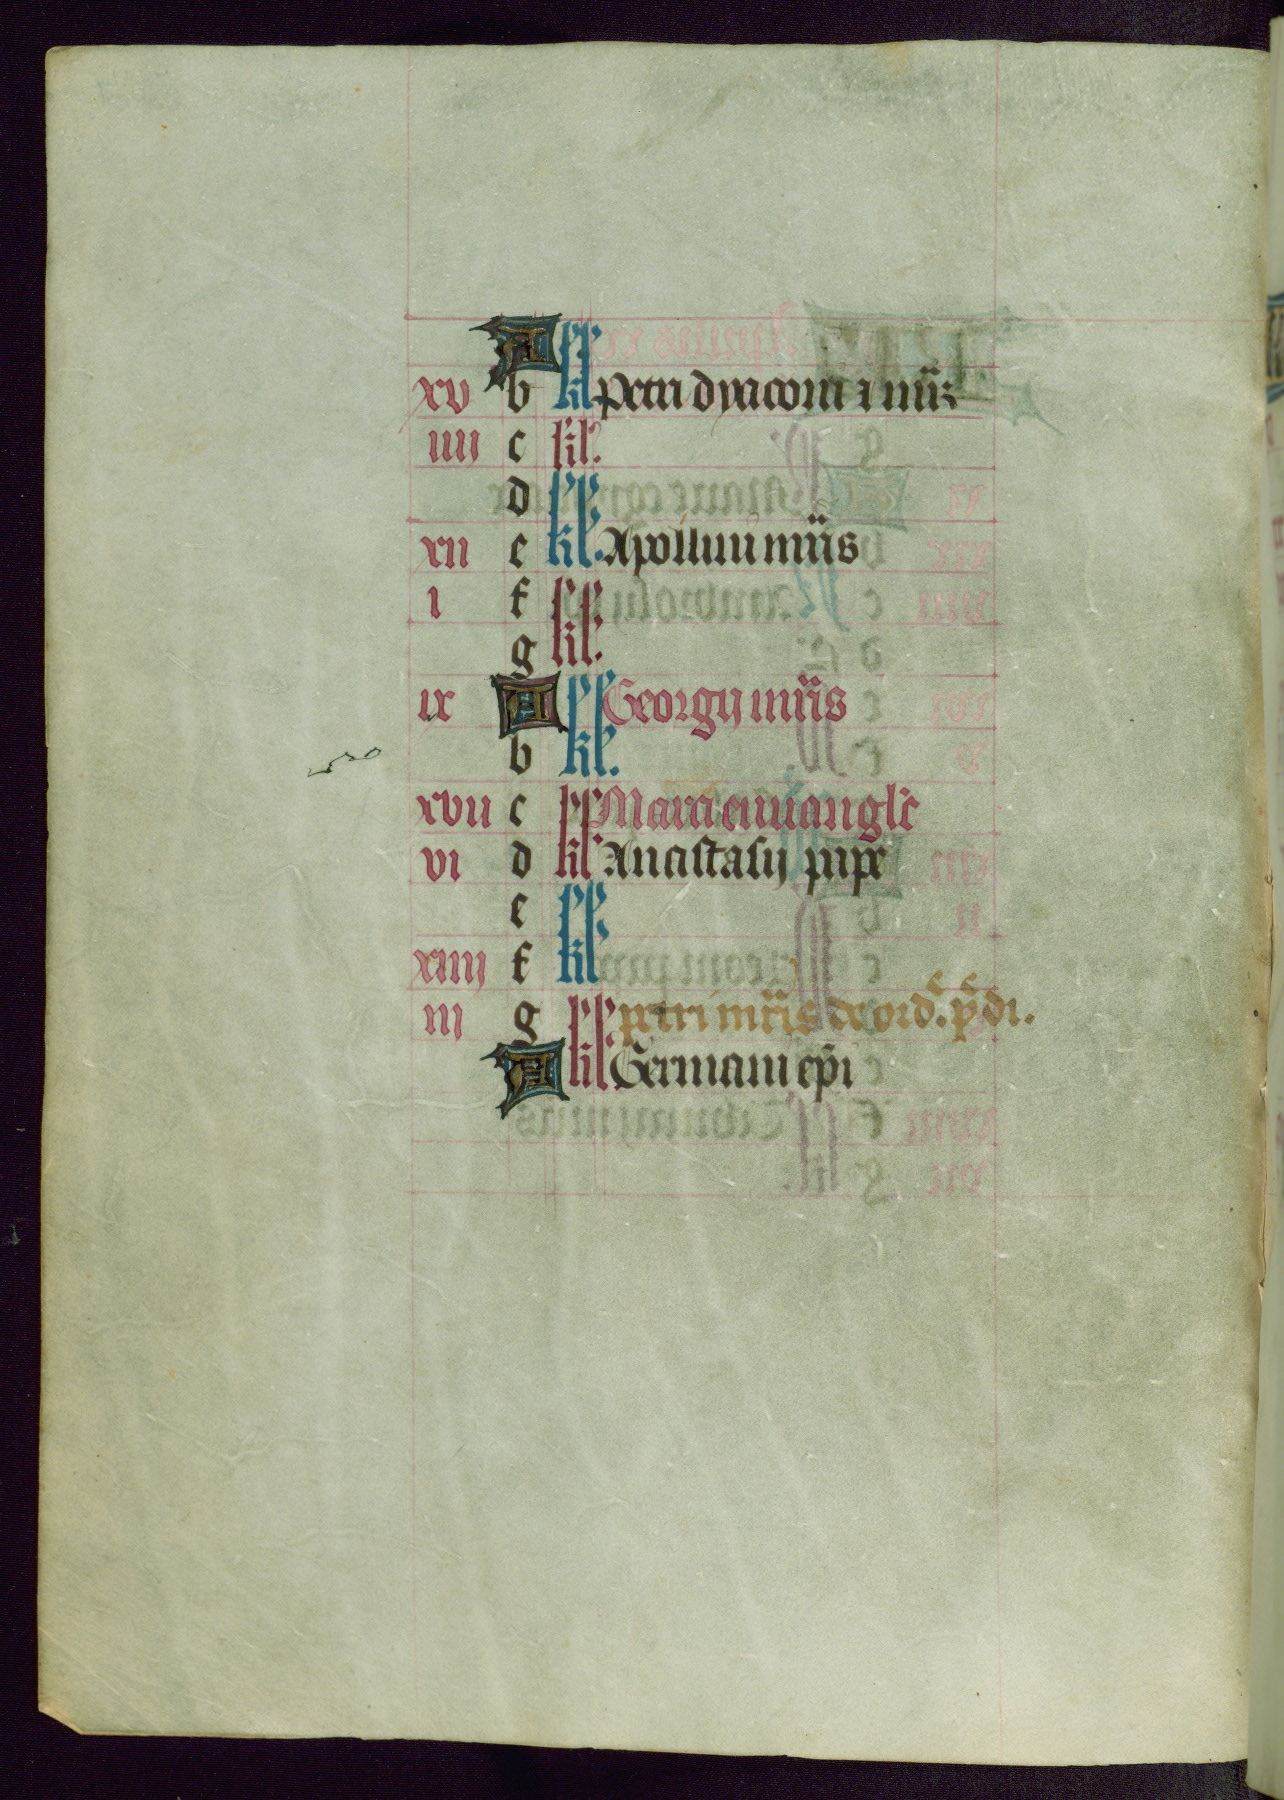 A kl
xv b kl Petri dyaconi ⁊ mr̄is
iiii c kl.
d kl
xii e kl. Apollinii mr̄is
i f kl
g kl.
ix A kl Georgij mr̄is
b kl.
xvii c kl Marci euuangl̄e
vi d kl Anastasij pape
e kl
xiiii f kl
iii g kl petri mr̄is de ord̄. p̄di.
A kl Germani ep̄i